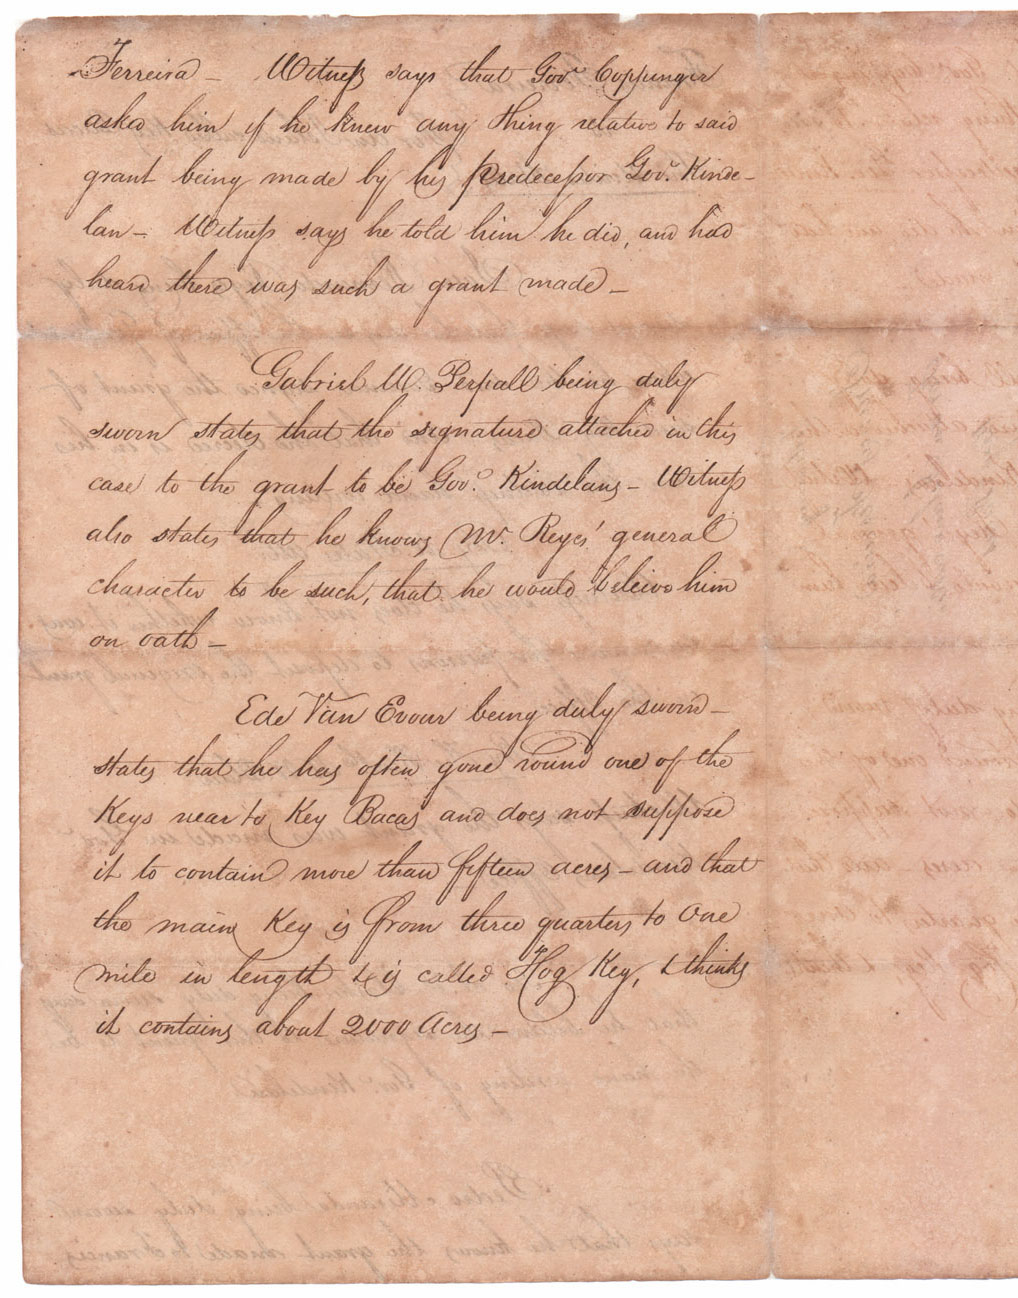 Ferreira – Witness says that Govr. Coppinger
asked him if he knew any thing relative to said
grant being made by his predecessor Govr. Kinde-
lan – Witness says he told him he did, and had
heard there was such a grant made –
Gabriel W. Perpall being duly
sworn states that the signature attached in this
case to the grant to be Govr. Kindelans – Witness
also states that he knows Mr. Reyes' general
character to be such, that he would beleive him
on oath –
Ede Van Evour being duly sworn –
states that he has often gone round one of the
Keys near to Key Bacas and does not suppose
it to contain more than fifteen acres – and that
the main Key is from three quarters to one
mile in length & is called Hog Key, & thinks
it contains about 2000 Acres –